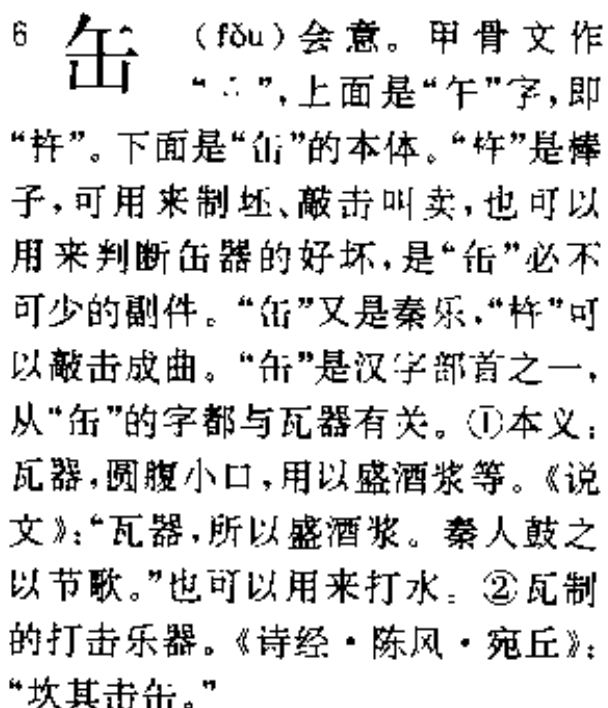 6 缶 (fǒu)会意。甲骨文作
“ ”,上面是“午”字,即
“杵”。下面是“缶”的本体。“杵”是棒
子,可用来制坯、敲击叫卖,也可以
用来判断缶器的好坏,是“缶”必不
可少的副件。“缶”又是秦乐,“杵”可
以敲击成曲。“缶”是汉字部首之一,
从“缶”的字都与瓦器有关。①本义:
瓦器,圆腹小口,用以盛酒浆等。《说
文》:“瓦器,所以盛酒浆。秦人鼓之
以节歌。”也可以用来打水。②瓦制
的打击乐器。《诗经·陈风·宛丘》:
“坎其击缶。”